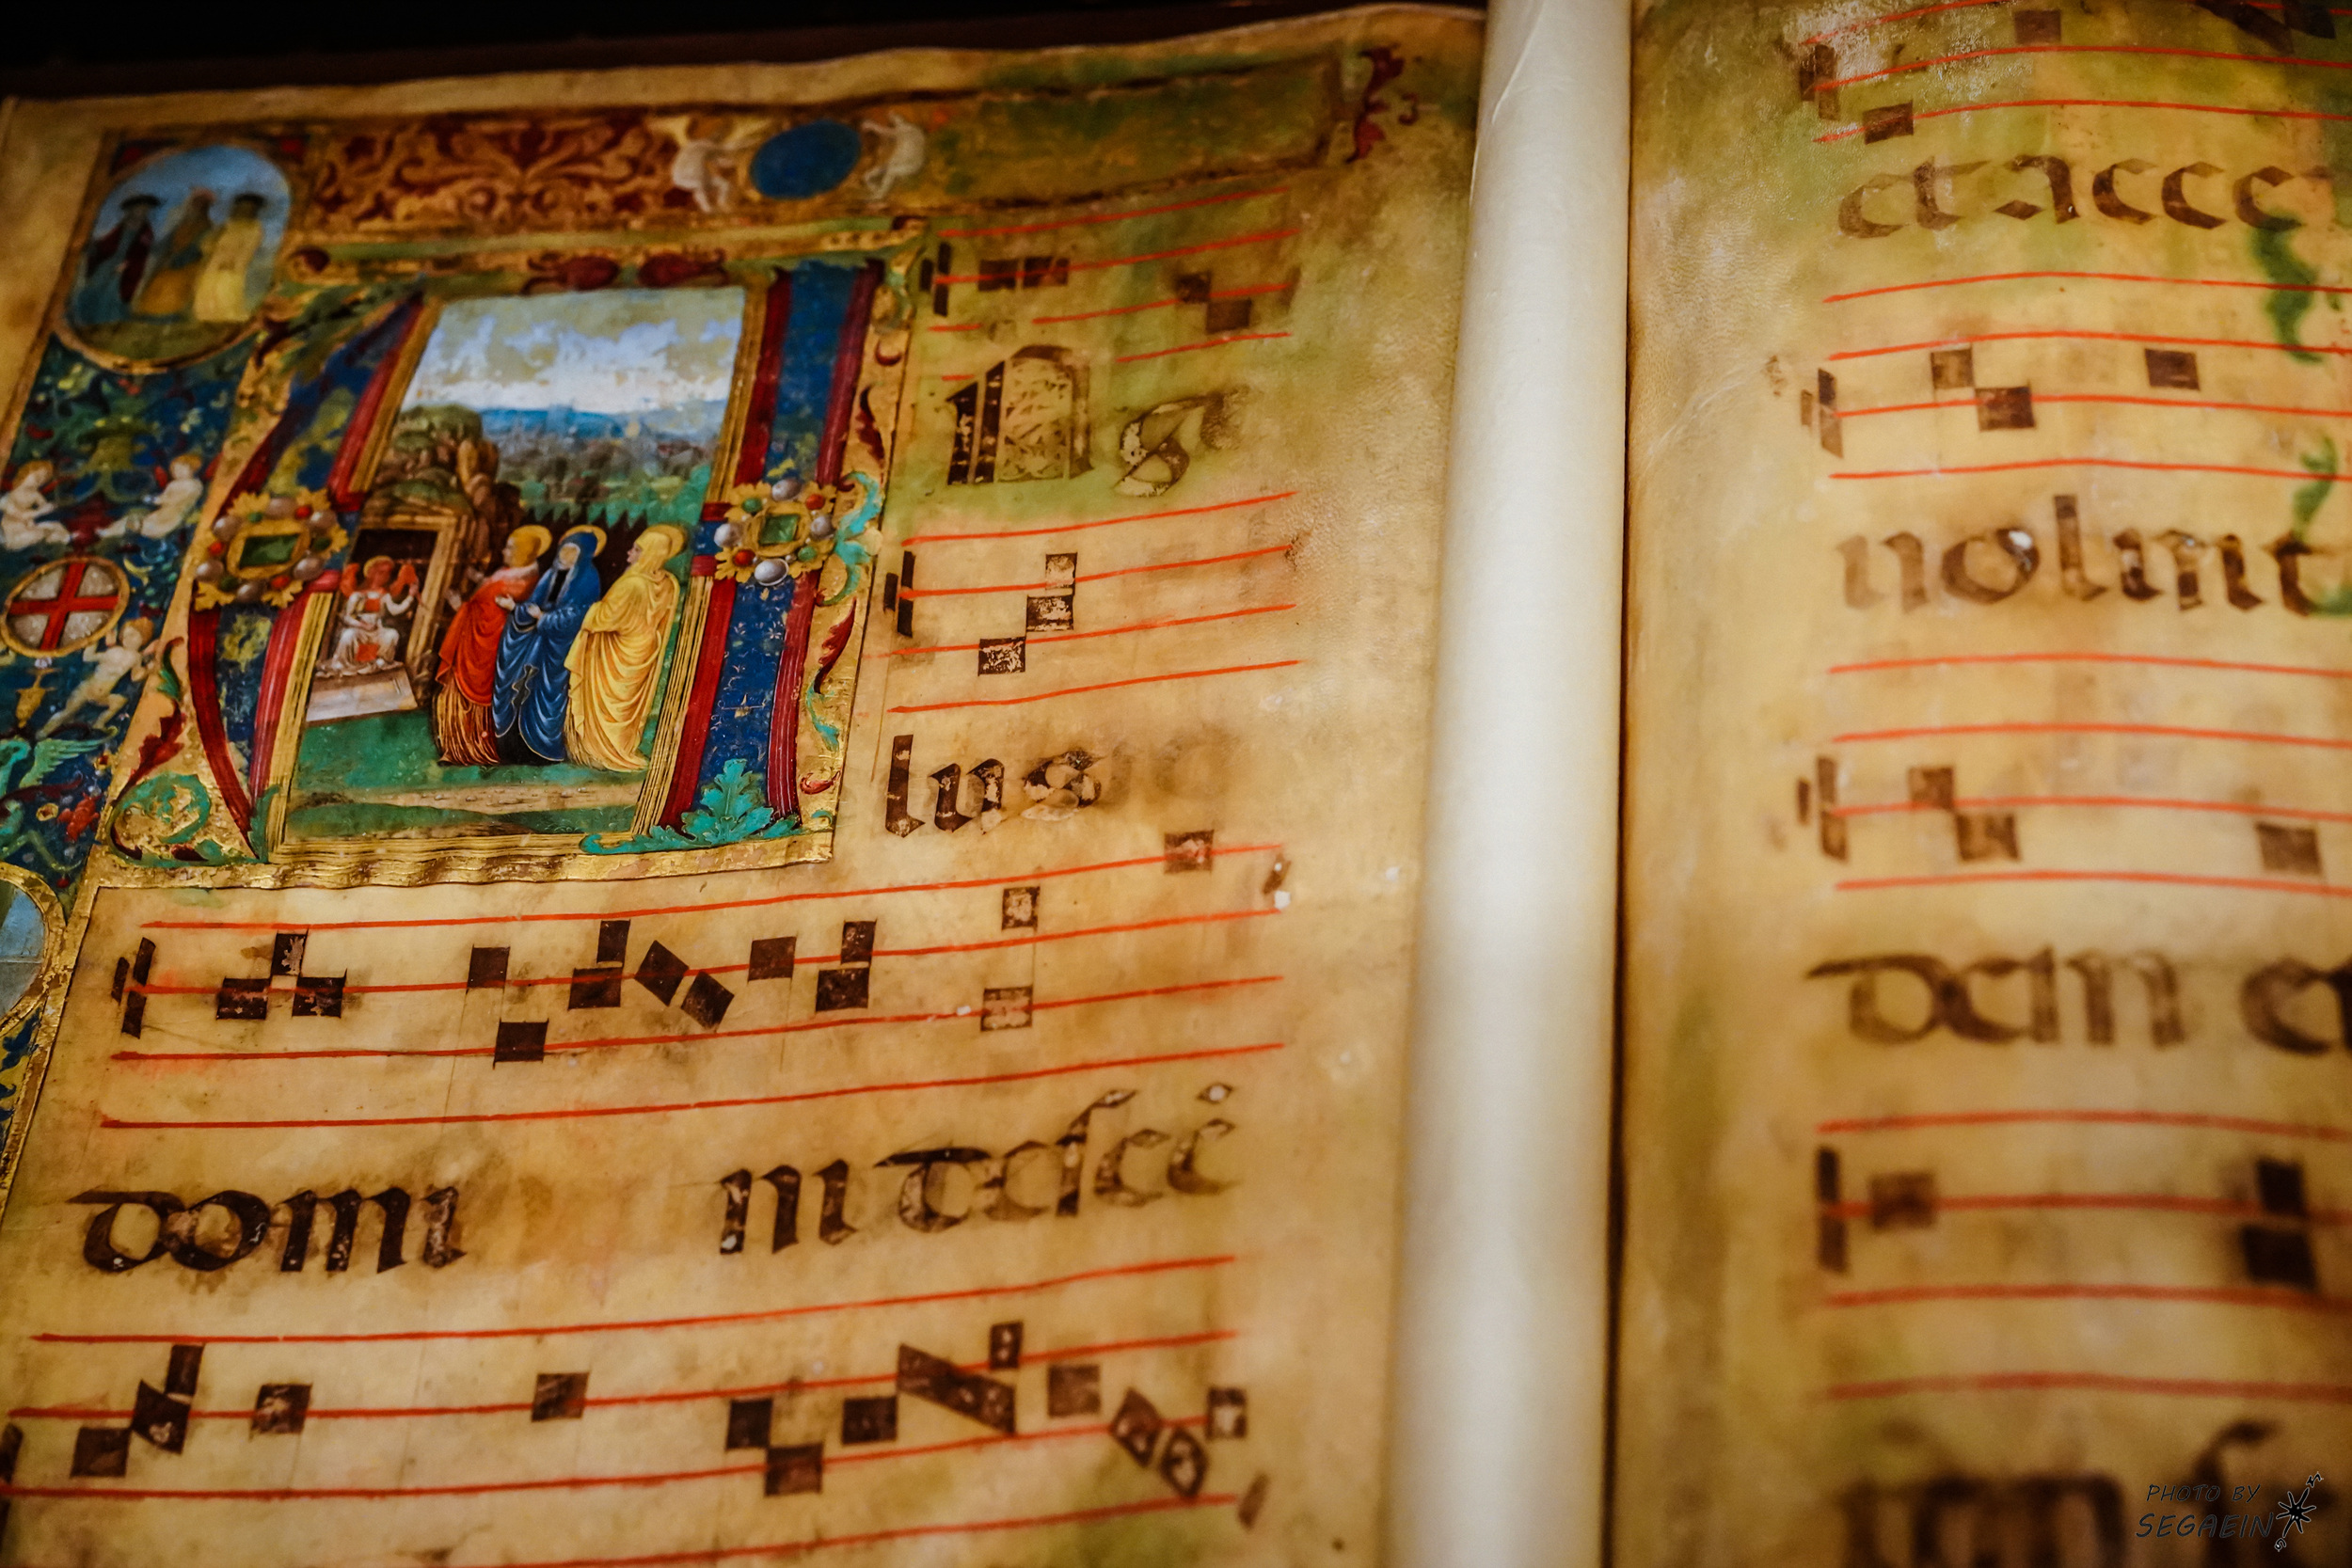 A Ng
lus
domi ni desce
et acce
uoluit
dem e
PHOTO BY
SEGAEIN